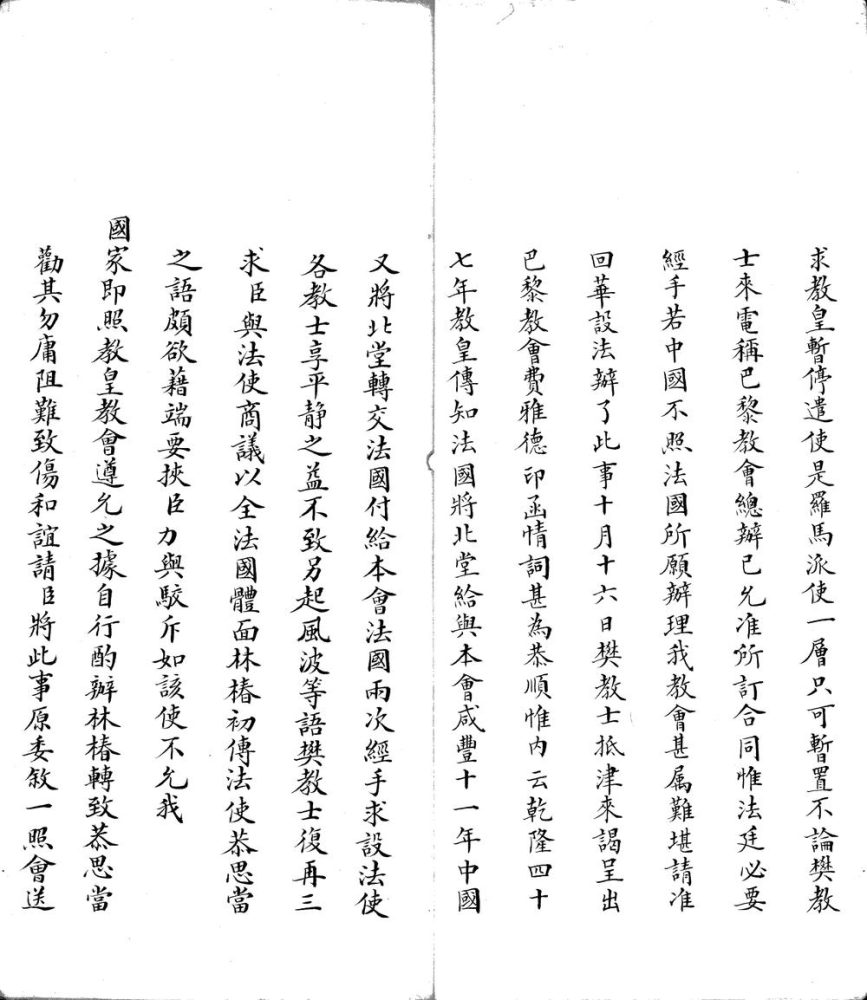 求教皇暫停遣使是羅馬派使一層只可暫置不論樊教
士來電稱巴黎教會總辦已允准所訂合同惟法廷必要
經手若中國不照法國所願辦理我教會甚属難堪請准
回華設法辦了此事十月十六日樊教士抵津來謁呈出
巴黎教會費雅德印函情詞甚為恭順惟內云乾隆四十
七年教皇傳知法國將北堂給與本會咸豐十一年中國
又將北堂轉交法國付給本會法國兩次經手求設法使
各教士享平静之益不致另起風波等語樊教士復再三
求臣與法使商議以全法國體面林椿初傳法使恭思當
之語頗欲藉端要挾臣力與駮斥如該使不允我
國家即照教皇教會遵允之據自行酌辦林椿轉致恭思當
勸其勿庸阻難致傷和誼請臣將此事原委敘一照會送